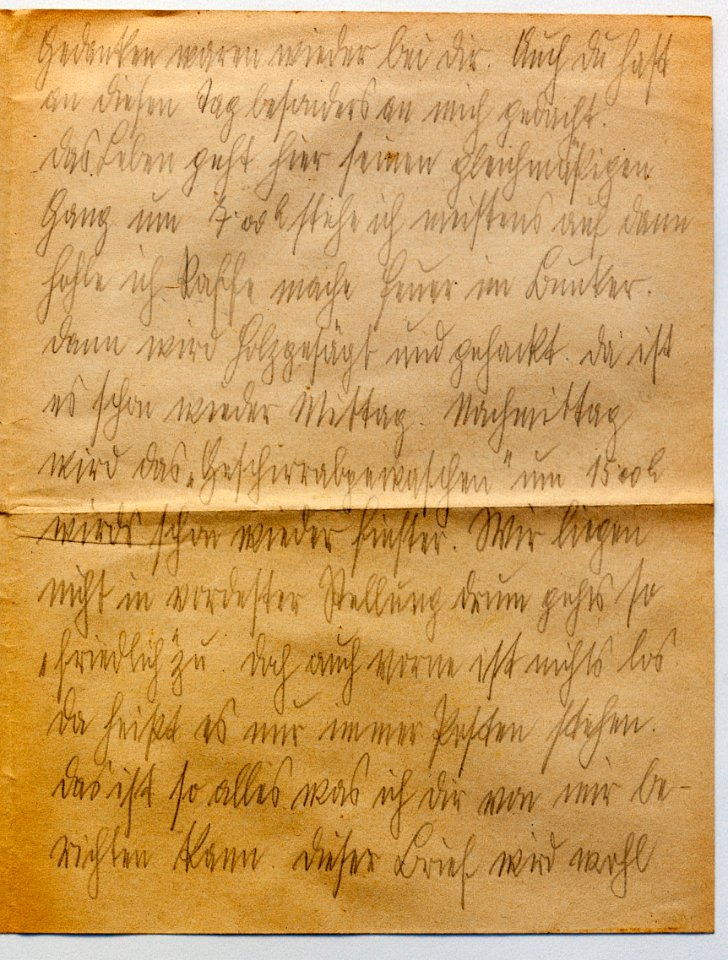 Gedanken waren wieder bei dir. Auch du hast
an diesen Tag besonders an mich gedacht.
Das Leben geht hier seinen gleichmäßigen
Gang um 7.00 h stehe ich meistens auf dann
hohle ich Kaffe mache Feuer im Bunker.
Dann wird Holzgesägt und gehackt. Da ist
es schon wieder Mittag. Nachmittag
wird das „Geschirrabgewaschen" um 15 00 h
wirds schon wieder finster. Wir liegen
nicht in vordester Stellung drum gehts so
„friedlich" zu. Doch auch vorne ist nichts los
da heißt es nur immer Posten stehen.
Das ist so alles was ich dir von mir be-
richten kann. Dieser Brief wird wohl